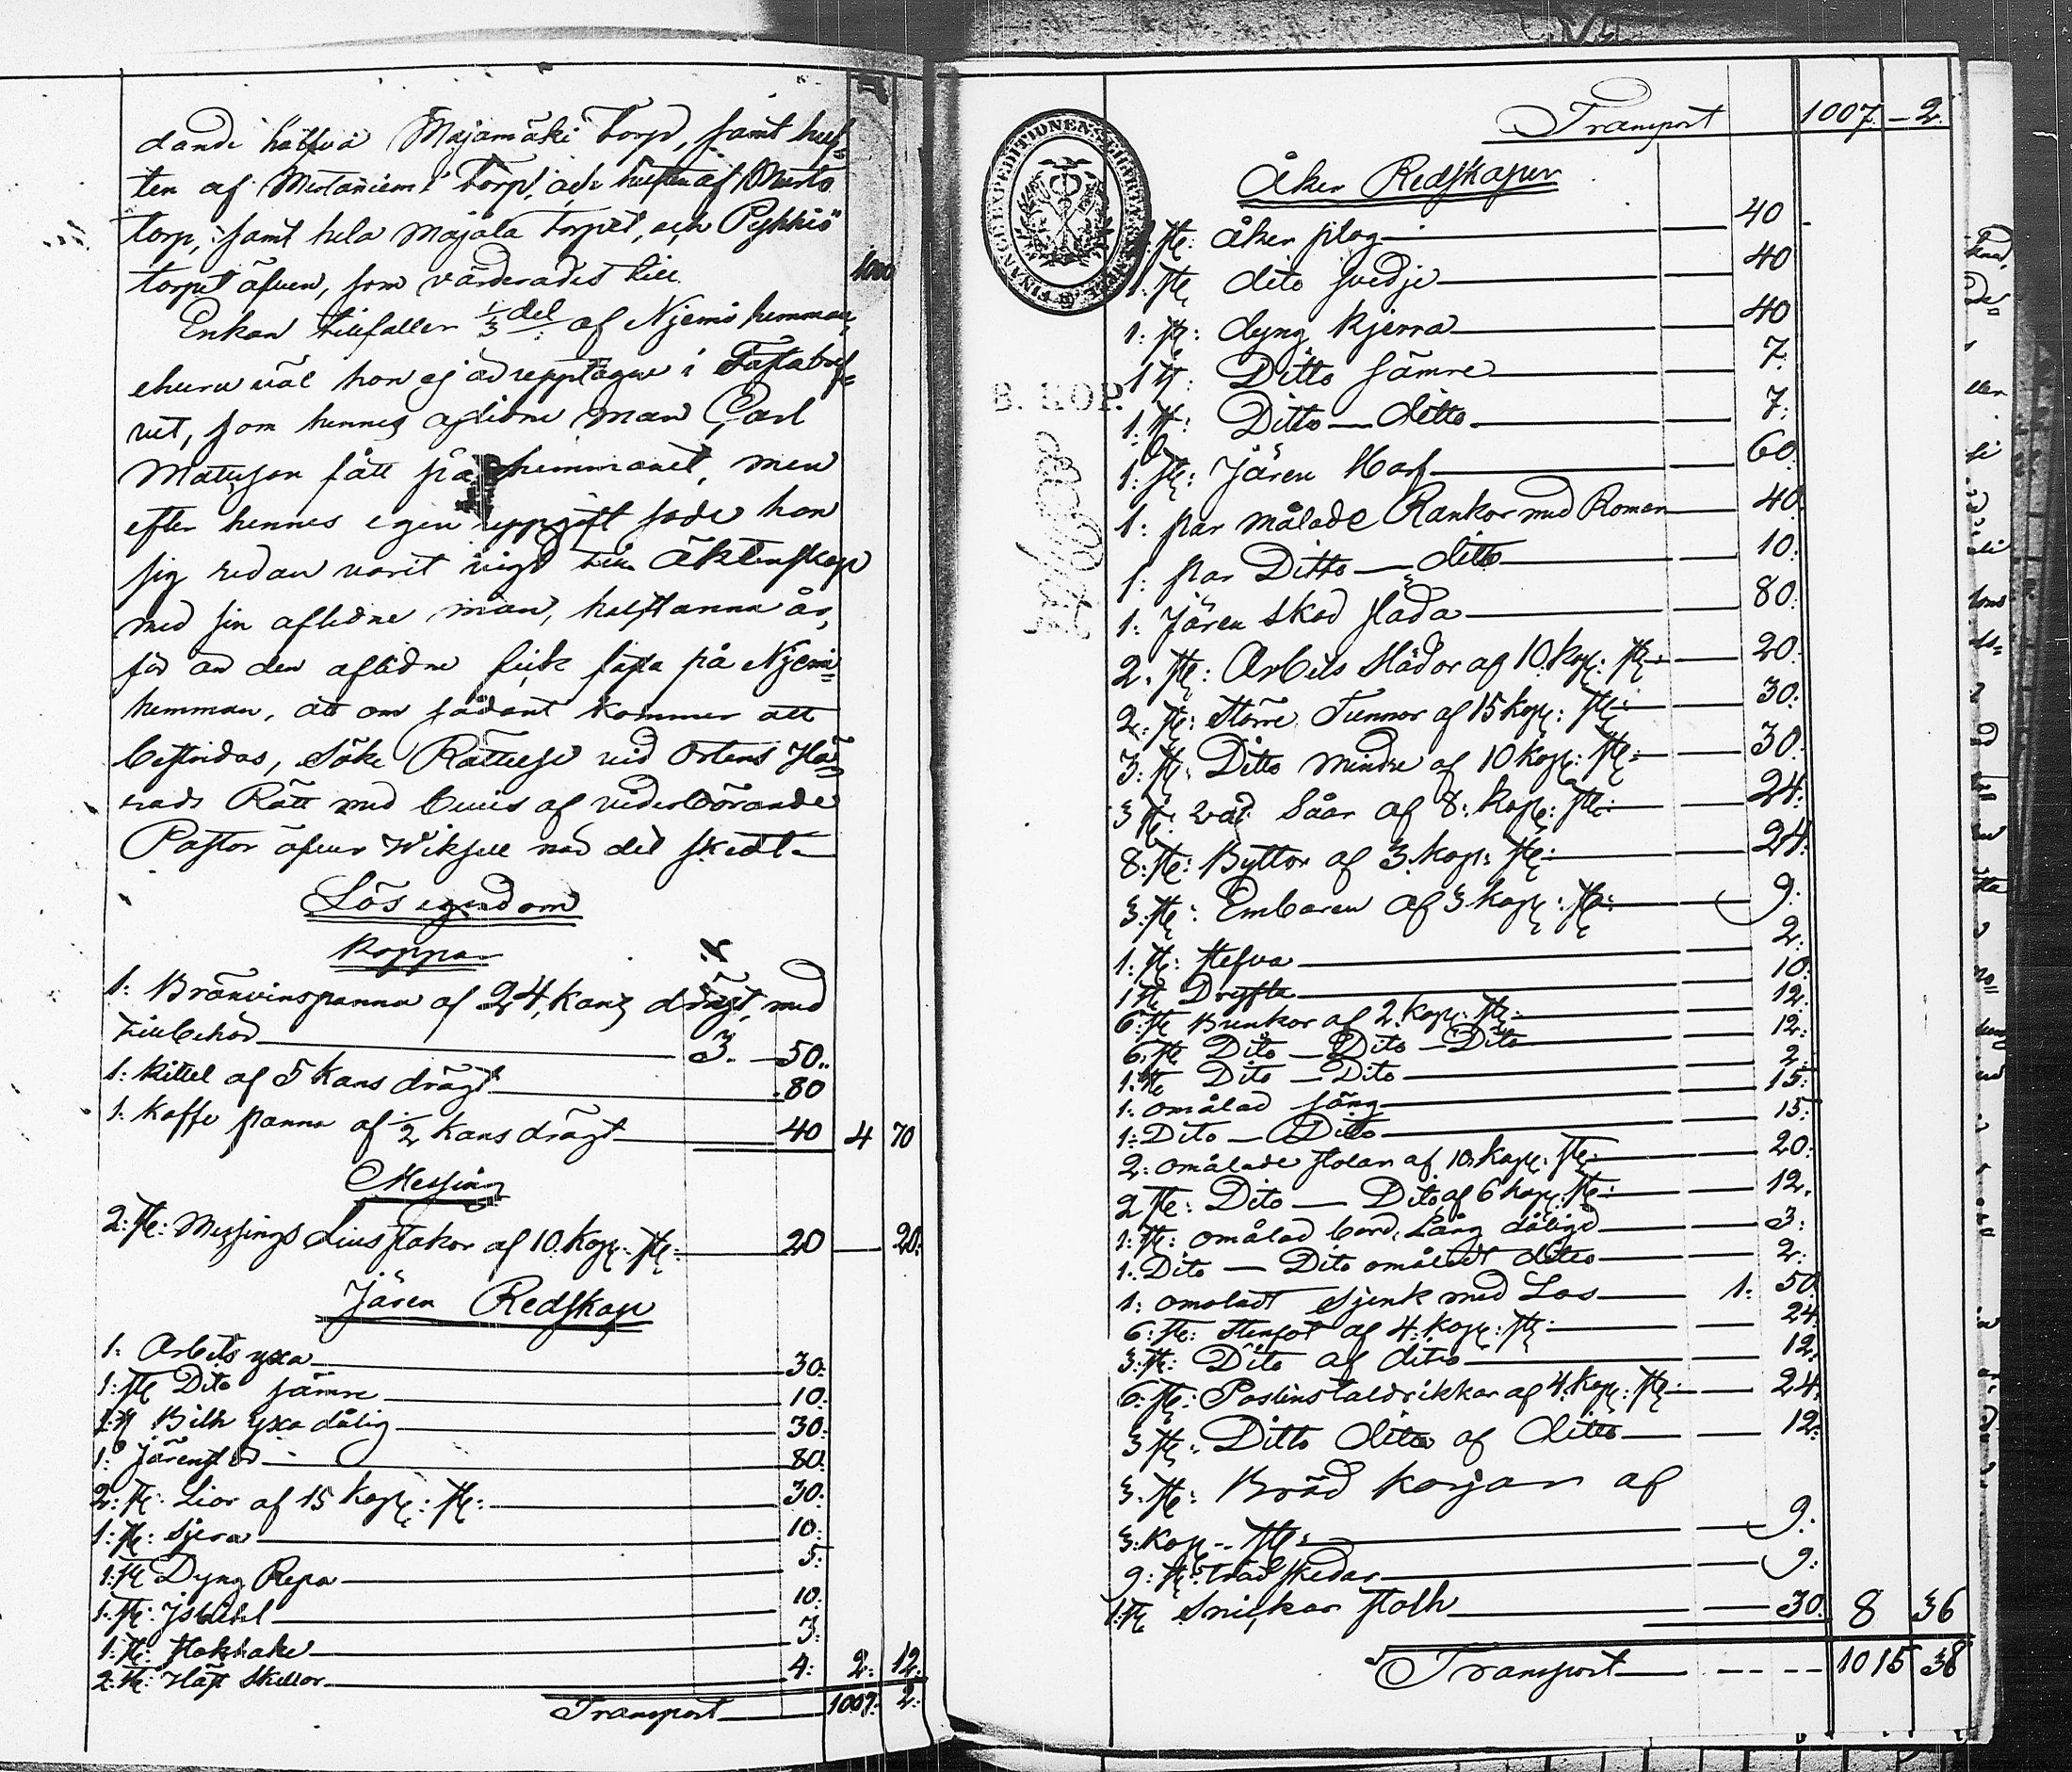 dande hälfva Majamäki Torp, samt helf-
ten af Torp, och helften af
torp, samt hela Majala torpet, och Pyhkiö
torpet äfven, som värderades till 1000
Enkan tillfaller 1/3 del af Njemi hemman,
ehuru väl hon ej är upptagen i Fastabref-
vet, som hennes aflidne man Carl
Matsson fått på hemmanet, men
efter hennes egen uppgift sade hon
sig redan varit vigd till Äktenskap
med sin aflidne man, helftanna år,
för än den aflidne fick fasta på Njemi
hemman, att om sådant kommer att
bestridas, söke Rättelse vid Ortens Hä-
rads Rätt med bevis af vederbörande
Pastor öfver Wiksell med det skedt.
Lös egendom
Koppar
1: Bränvinspanna af 24, kans drägt, med
tillbehör 3. 50.
1: Kittel af 5 Kans drägt 80
1: Kaffe panna af 1/2 Kans drägt 40 4 70
Messing
2: st: Messings Liusstakar af 10. Kop: st: 20 20:
Jären Redskap
1: Arbets yxa 30:
1: st Dito sämre 10:
1: st Bilh yxa dålig 30:
1: Järenstör 80:
2: st: Liar af 15 Kop: st: 30:
1: st: Sjera 10:
1: st Dyng Repa 5:
1: st: Jsbihl 10:
1: st: 3:
2: st: Häst Skellor 4: 2: 12:
Transport 1007: 2:
Transport 1007. – 2.
Åker Redskaper
FINANCE EXPEDITIONENS CHARTÆ STEMPEL
8. KOP.
1. st: åker plog 40
1. st dito svedje 40
1: st: dyng Kjerra 40
1 st: Ditto sämre 7.
1: st: Ditto ditto 7.
1: st: Jären Harf 60.
1: par målade Rankor med Roman 40.
1: par Ditto ditto 10:
1: Jären skod släda 80:
2. st: Arbets slädor af 10. kop: st: 20:
2. st: större Tunnor af 15 kop: st: 30:
3: st: Ditto mindre af 10 kop: st: 30:
3 st: Såar af 8: kop: st: 24:
8: st: Byttor af 3. kop: st: 24:
3: st: Embaren af 3 kop: st: 9.
1: st: stefva 2.
1 st Dryfta 10.
6: st Bunkor af 2. kop: st: 12.
6. st Dito – Dito – Dito 12:
1. st Dito – Dito 2:
1. omålad säng 15:
1: Dito – Dito 15:
2: omålade stolar af 10. kop: st: 20:
2 st: Dito – Dito af 6 kop. st: 12.
1: st: omålad bord, Lång dåligd 3:
1: Dito – Dito omåladt ditto 2:
1: omåladt Sjenk med Lås 1: 50
6: st: Stenfat af 4. kop: st: 24
3: st: Dito af ditto 12.
6: st: Poslins taldrikkar af 4. kop: st: 24.
3 st: Ditto ditto af ditto 12:
3. st: Bröd korjar af
3: Kop-- st: 9:
9: st: träd skedar 9:
1: st Snickar stolh 30. 8 36
Transport 1015 38